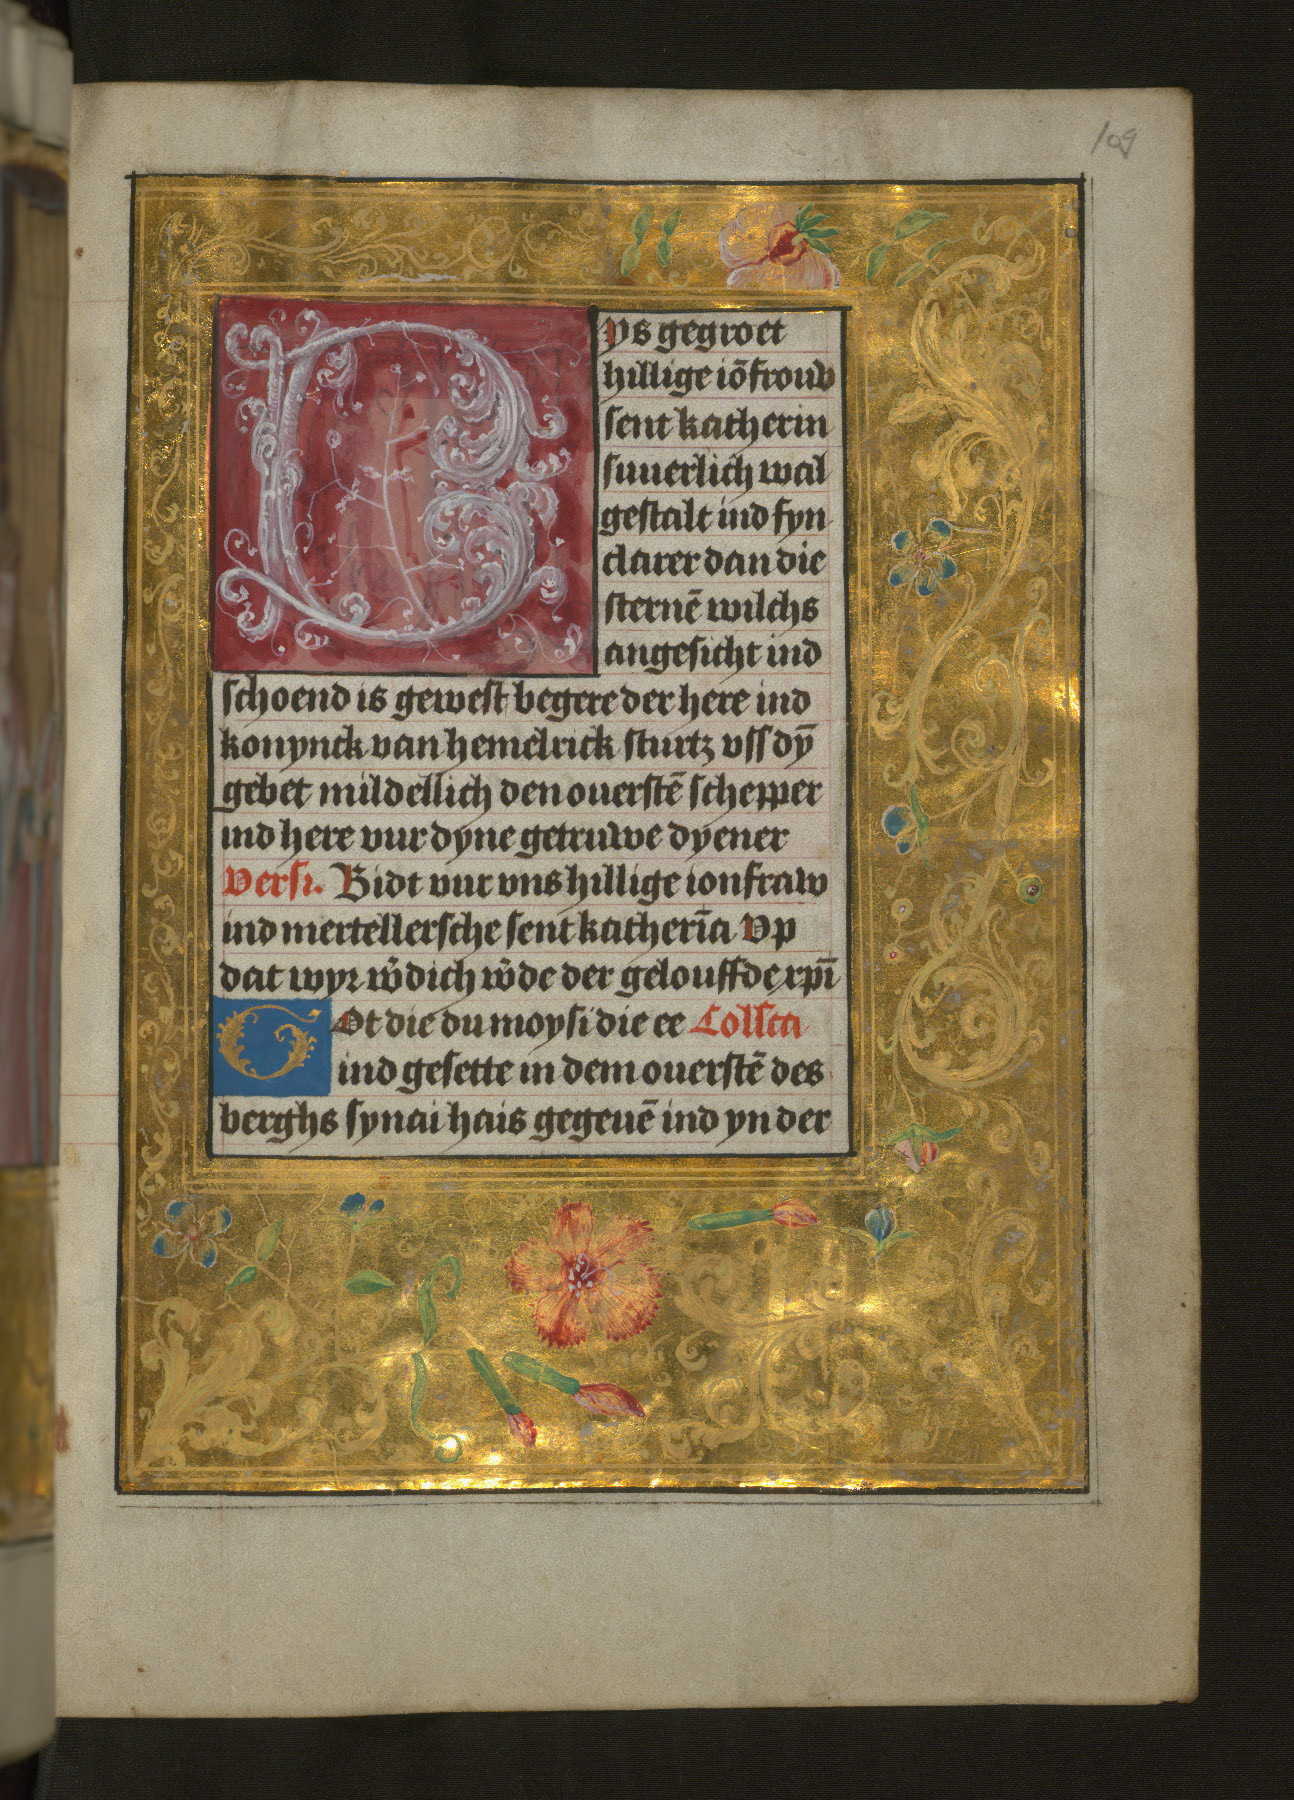 109
Bys gegroet
hillige iōfrouw
sent katherin
suuerlich wal
gestalt ind fyn
clarer dan die
sternē wilchs
angesicht ind
schoend is gewest begere der here ind
konynck van hemelrick sturtz vss dȳ
gebet mildellich den ouerstē schepper
ind here vur dyne getruwe dyener
Versz. Bidt vur vns hillige ionfraw
ind mertellersche sent katherīa Vp
dat wyr w̄dich w̄de der gelouffde xpī
GOt die du moysi die ee Collcta
ind gesette in dem ouerstē des
berghs synai hais gegeuē ind yn der